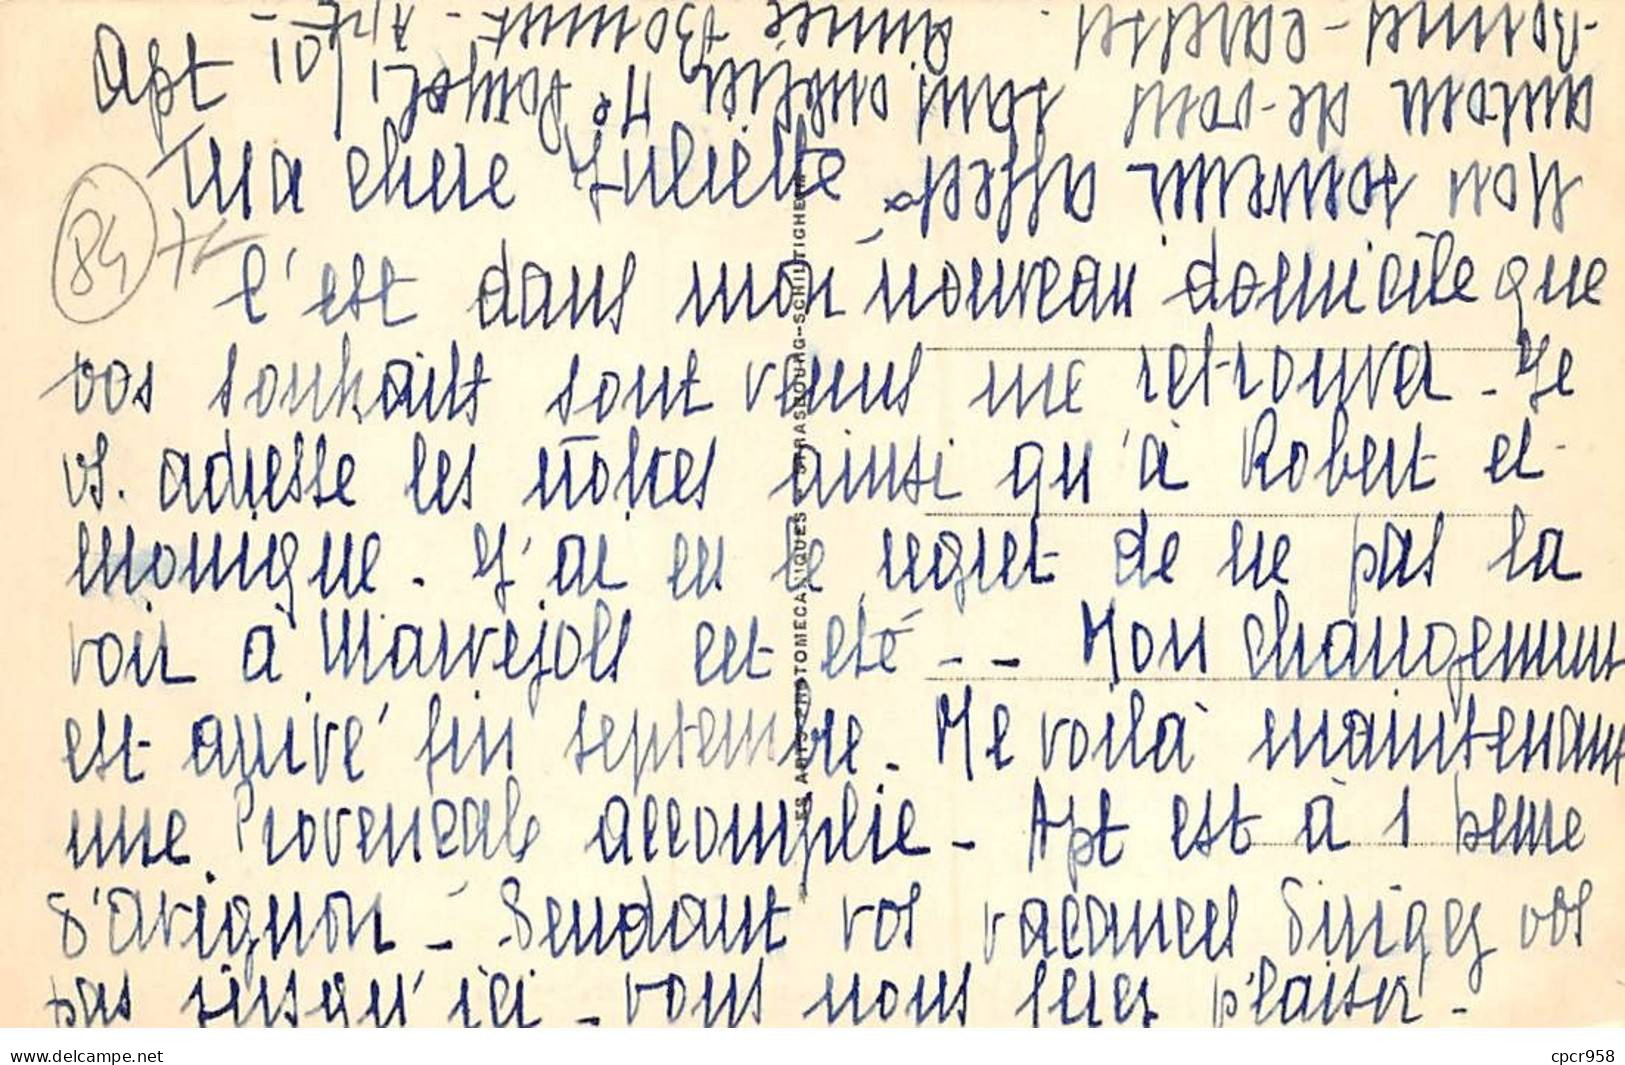 Apt 10/1
Ma chère Juliette
C'est dans mon nouveau domicile que
vos souhaits sont venus me retrouver - Je
vs. adresse les nôtres ainsi qu'à Robert et
Monique. J'ai eu le regret de ne pas la
voir à Marvejols cet été - - Mon changement
est arrivé fin septembre. Me voilà maintenant
une Provençale accomplie - Apt est à 1 heure
d'Avignon - Pendant vos vacances dirigez vos
pas jusqu'ici - vous nous ferez plaisir -
Mon souvenir affect.
autour de vous sans oublier
Bonnes caresses. Aimée Bonnet - Apt -
84
ES ARTS PHOTOMECANIQUES STRASBOURG--SCHILTIGHEIM
cpcr958